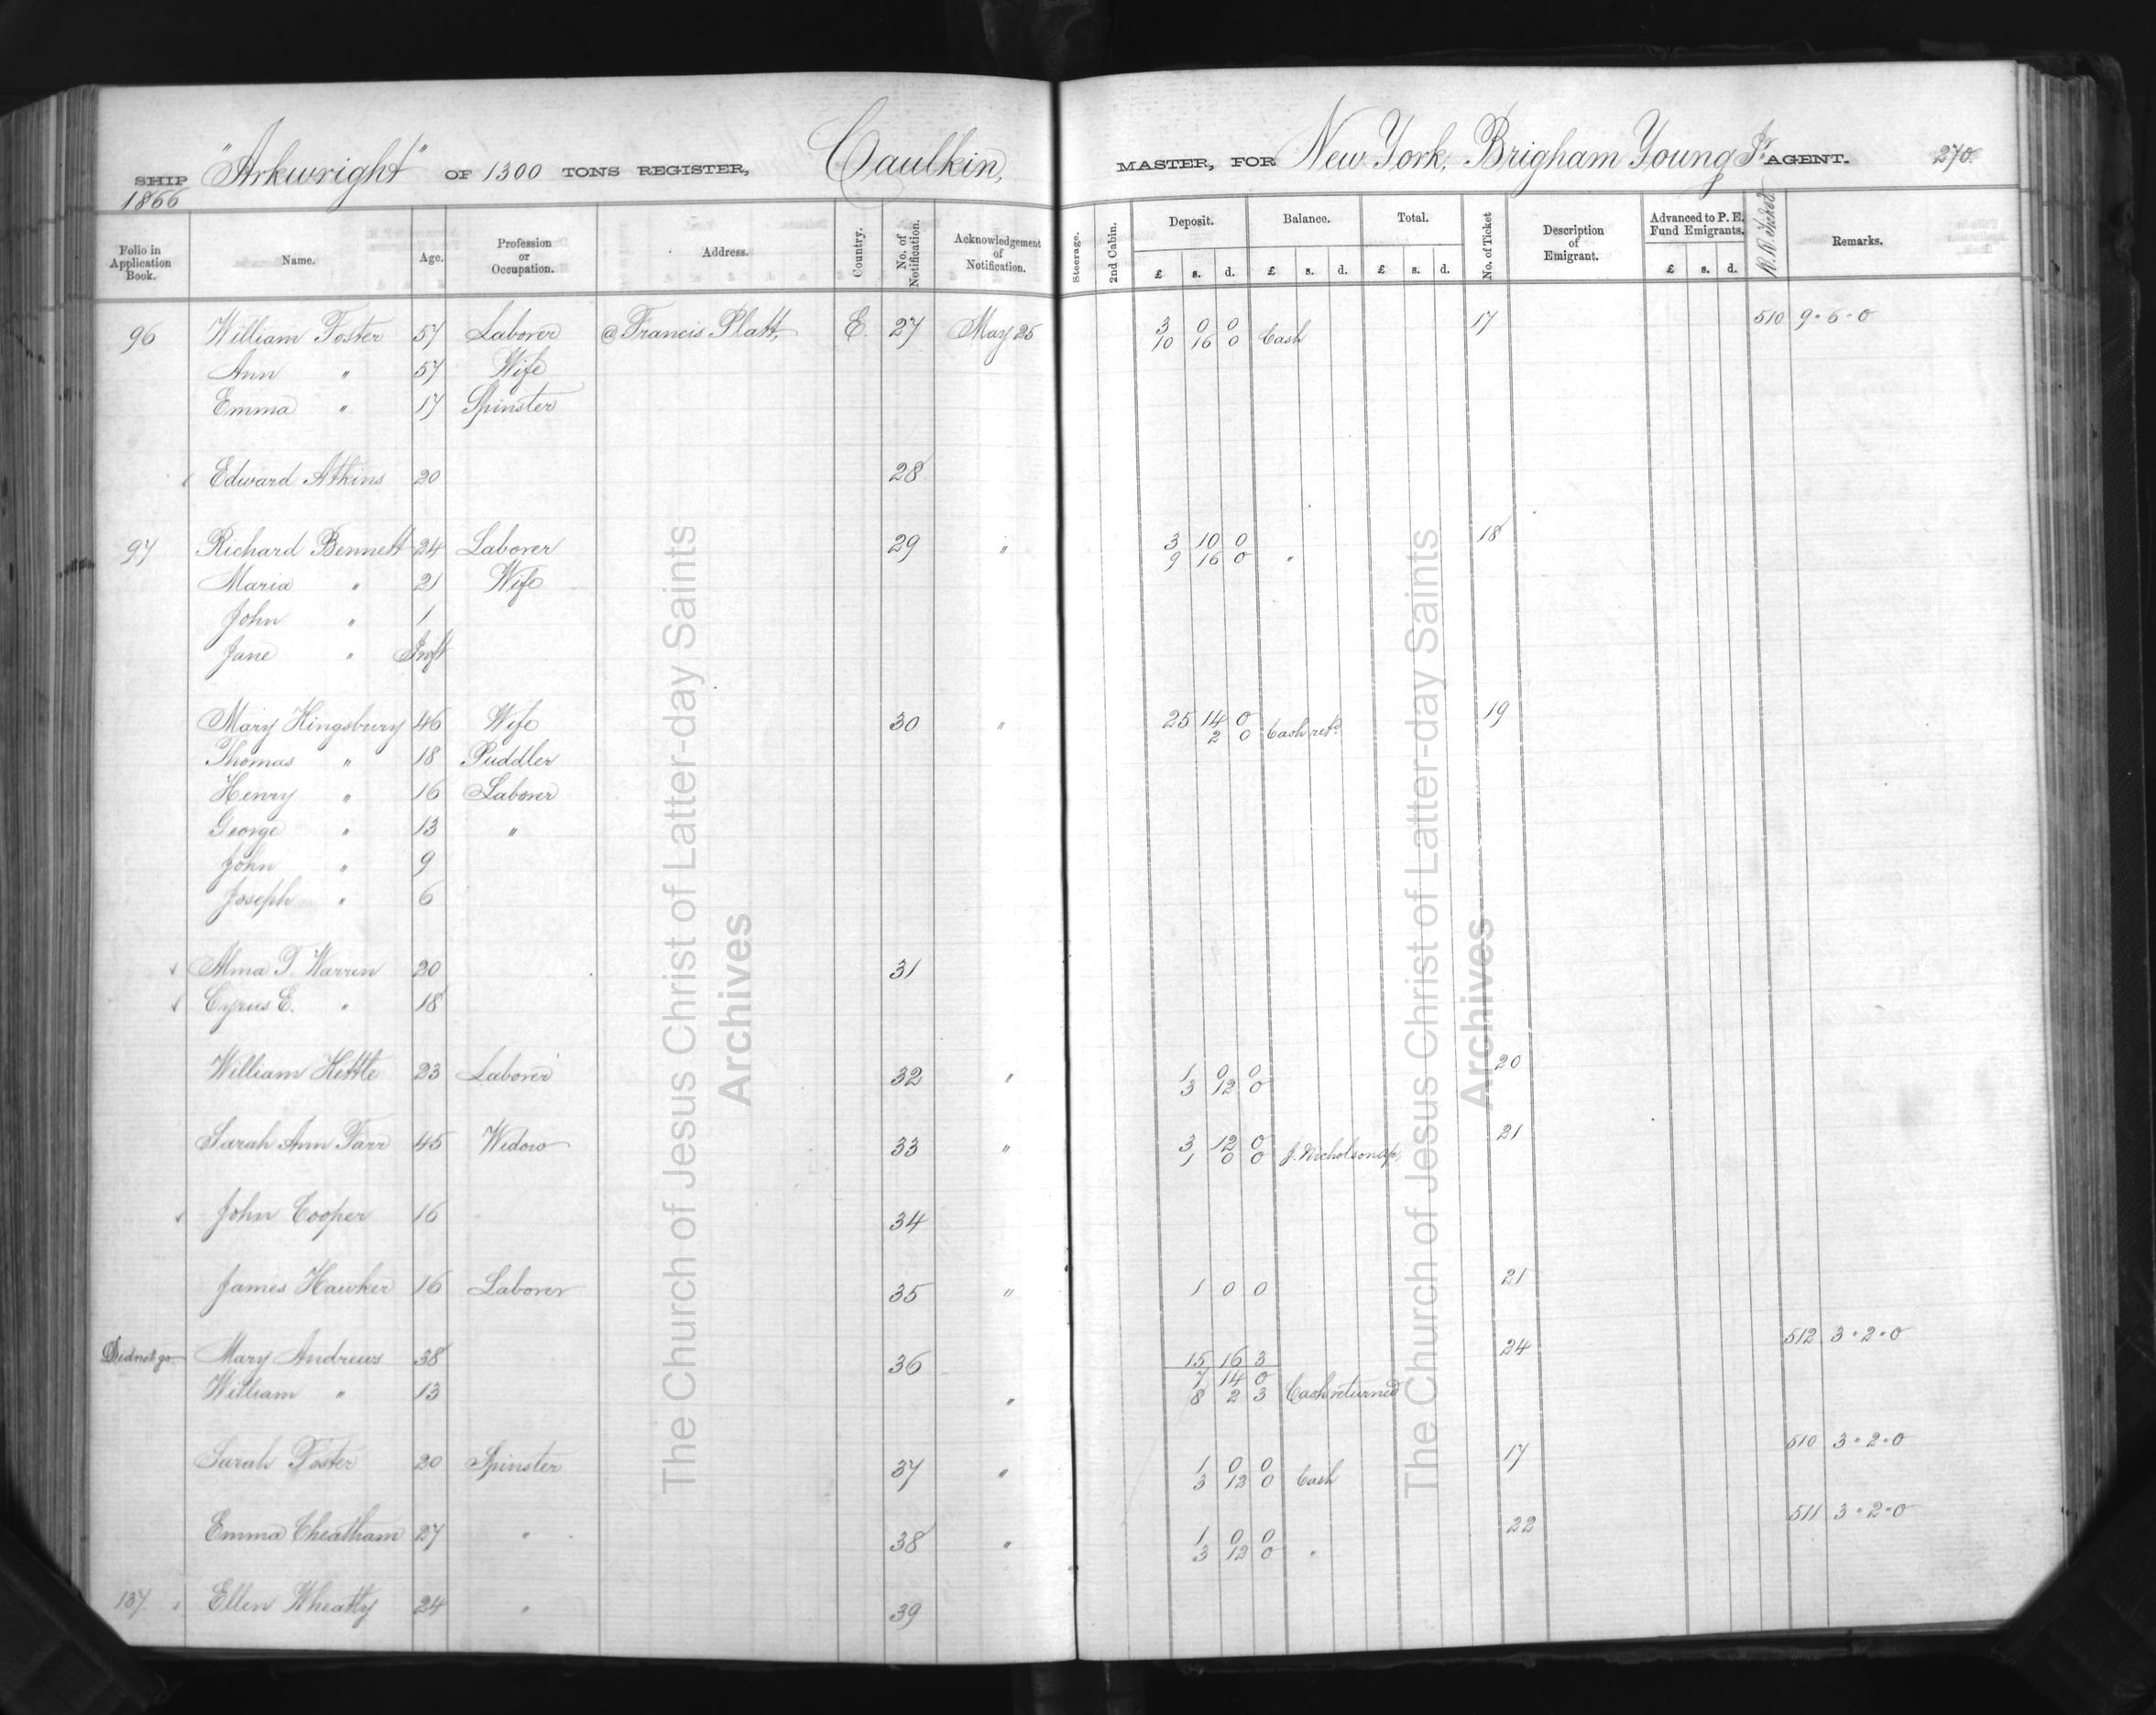 SHIP "Arkwright" OF 1300 TONS REGISTER, Caulkin, MASTER, FOR New York, Brigham Young Jr. AGENT. 270.
1866
Folio in Application Book. Name. Age. Profession or Occupation. Address. Country. No. of Notification. Acknowledgement of Notification. Steerage. 2nd Cabin. Deposit. Balance. Total. No. of Ticket Description of Emigrant. Advanced to P. E. Fund Emigrants. R.R. Ticket Remarks.
£ s. d. £ s. d. £ s. d. £ s. d.
96 William Foster 57 Laborer @ Francis Platt, E. 27 May 25 3 0 0 17 510 9-6-0
10 16 0 Cash
Ann " 57 Wife
Emma " 17 Spinster
Edward Atkins 20 28
97 Richard Bennett 24 Laborer 29 " 3 10 0 18
9 16 0 "
Maria " 21 Wife
John " 1
Jane " Inft
Mary Kingsbury 46 Wife 30 " 25 14 0 19
2 0 Cash retd
Thomas " 18 Puddler
Henry " 16 Laborer
George " 13 "
John " 9
Joseph " 6
Alma T. Warren 20 31
Cyrus E. " 18
William Kettle 23 Laborer 32 " 1 0 0 20
3 12 0
Sarah Ann Farr 45 Widow 33 " 3 12 0 21
1 0 0 J. Nicholson
John Cooper 16 34
James Hawker 16 Laborer 35 " 1 0 0 21
Did not go Mary Andrews 38 36 15 16 3 24 512 3-2-0
7 14 0
William " 13 " 8 2 3 Cash returned
Sarah Foster 20 Spinster 37 " 1 0 0 17 510 3-2-0
3 12 0 Cash
Emma Cheatham 27 " 38 " 1 0 0 22 511 3-2-0
3 12 0 "
137 Ellen Wheatly 24 " 39
The Church of Jesus Christ of Latter-day Saints
Archives
The Church of Jesus Christ of Latter-day Saints
Archives